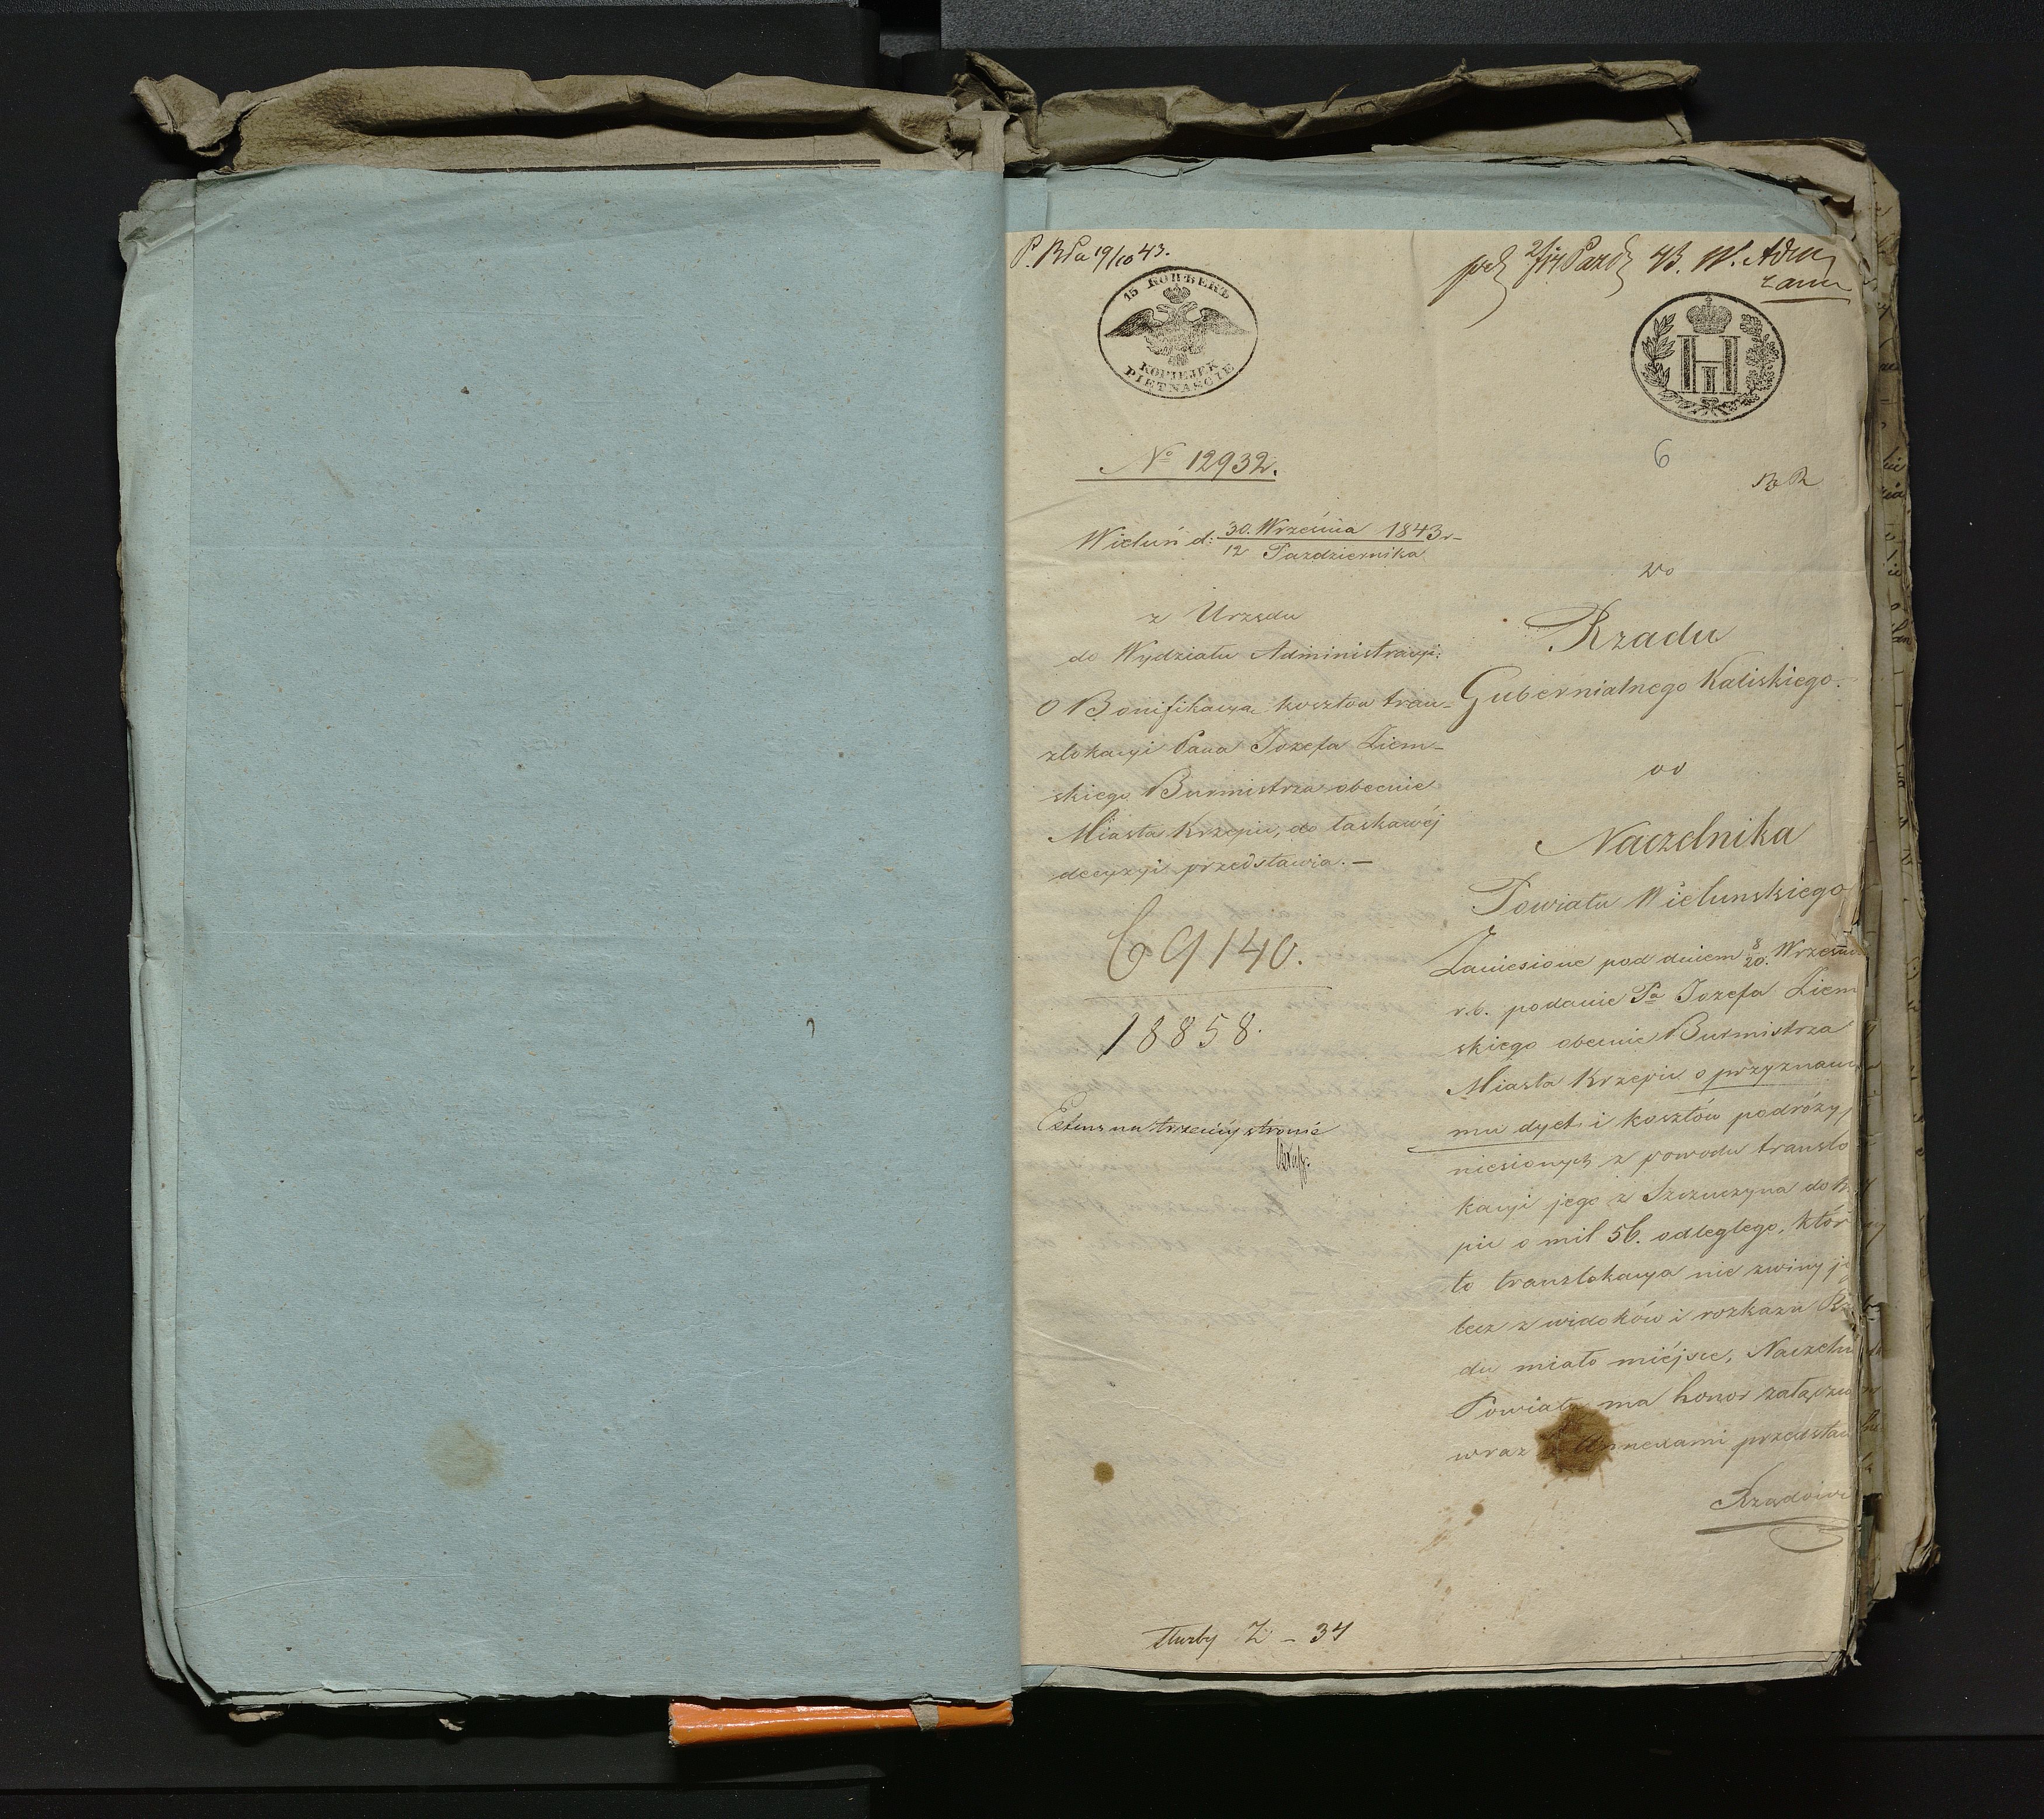 P. 19/10 43.
15 КОПѢЕКЪ
KOPIEJEK
PIĘTNAŚCIE
2/14 Pazdz 43. W. Adm
6
No 12932.
Wieluń d: 30. Września 1843 r
12 Pazdziernika
z Urzędu
do Wydziału Administracyi:
O Bonifikacya kosztow tran-
zlokacyi Pana Jozefa Ziem-
skiego Burmistrza obecnie
Miasta Krzepic, do łaskawéj
decyzyi przedstawia. —
69140.
18858.
na trzeciéj stronie
do
Rządu
Gubernialnego Kaliskiego.
od
Naczelnika
Powiatu Wieluńskiego
Zaniesione pod dniem 8/20. Wrześni
r. b. podanie Pa Jozefa Ziem
skiego obecnie Burmistrza
Miasta Krzepic o przyznani
mu dyet i kosztów podróży p
niesionych z powodu translo
kacyi jego z Szczuczyna do K
pic o mil 56. odległego, któr
to translokacya nie z winy je
lecz z widoków i rozkazu Rz
du miało miéjsce, Naczelni
Powiatu ma honor załącza
wraz z Annexami przedstaw
Rządowi
Z – 34